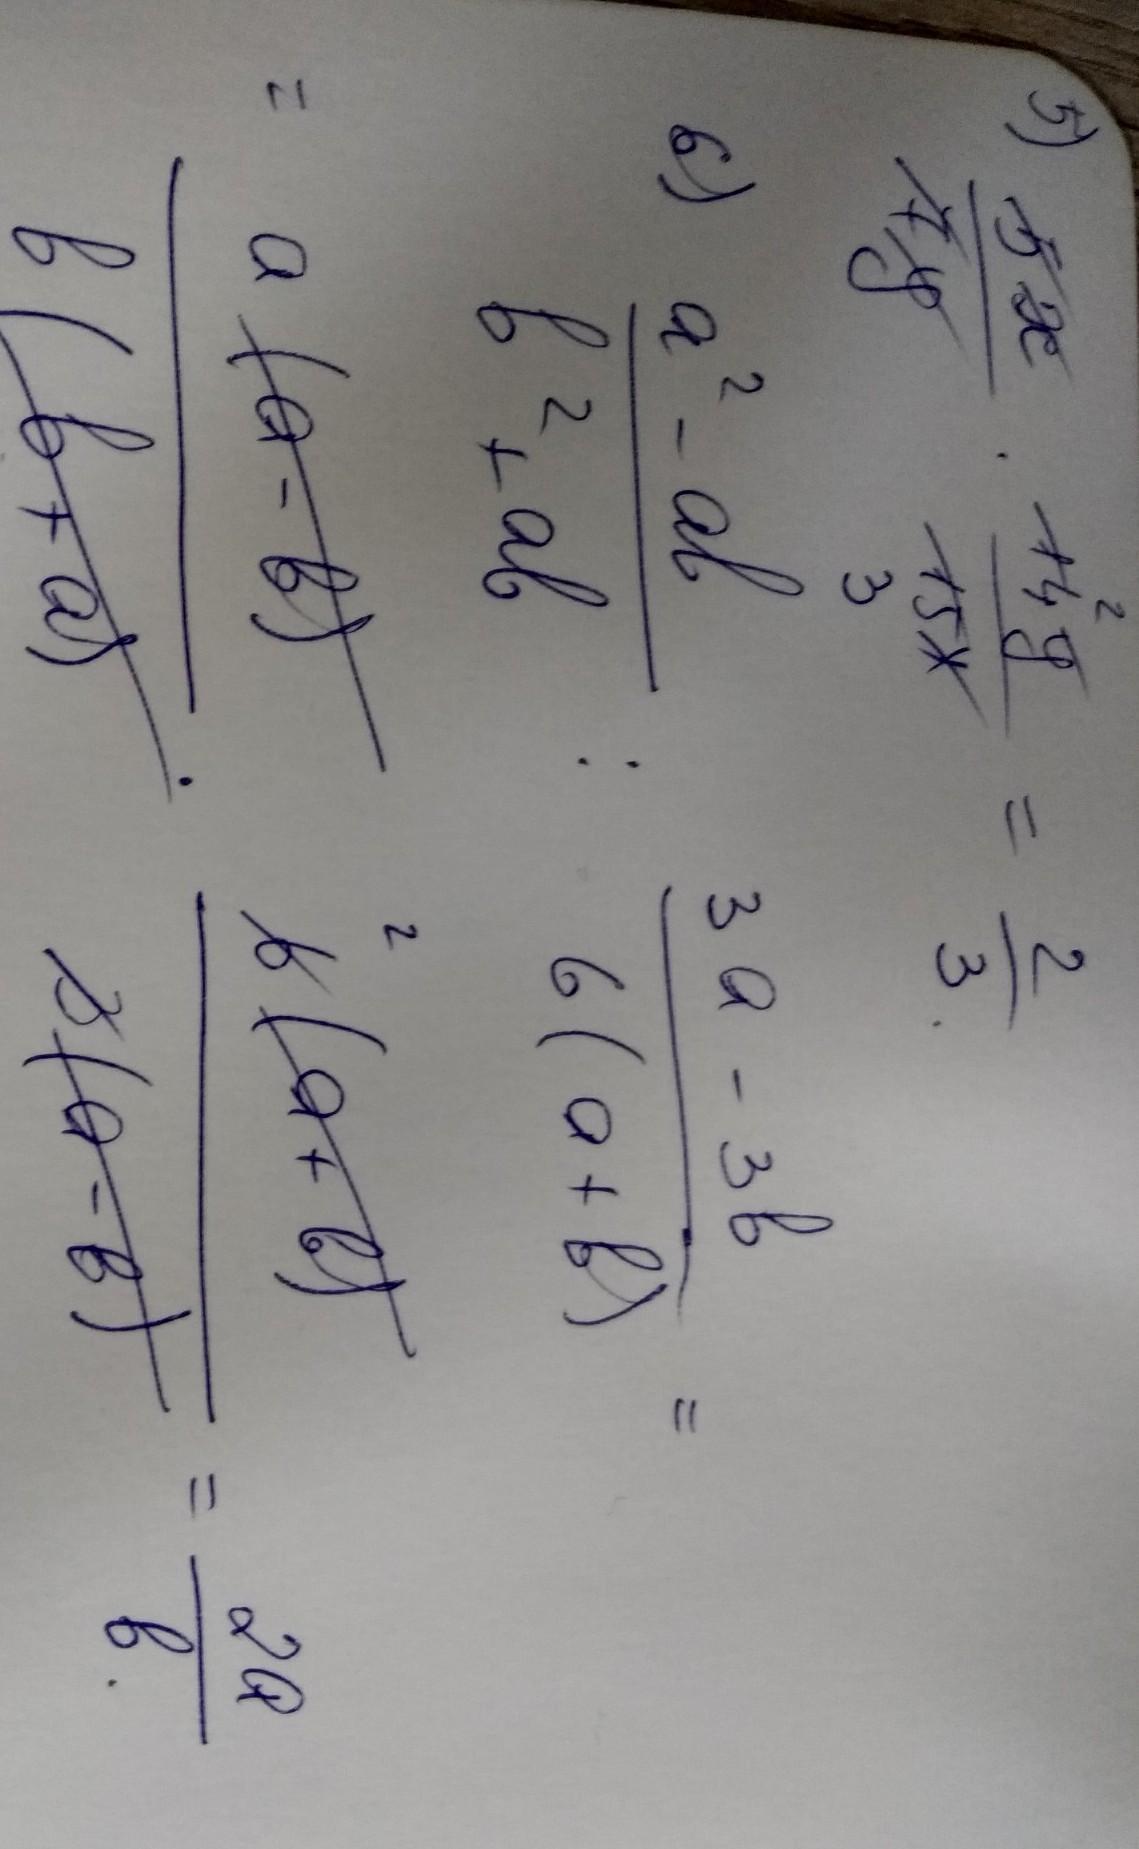 5) 5x/7y · 14y/15x = 2/3.
2
3
6) a² - ab / b² + ab : 3a - 3b / 6(a + b) =
= a(a - b) / b(b + a) · 6(a + b) / 3(a - b) = 2a / b.
2